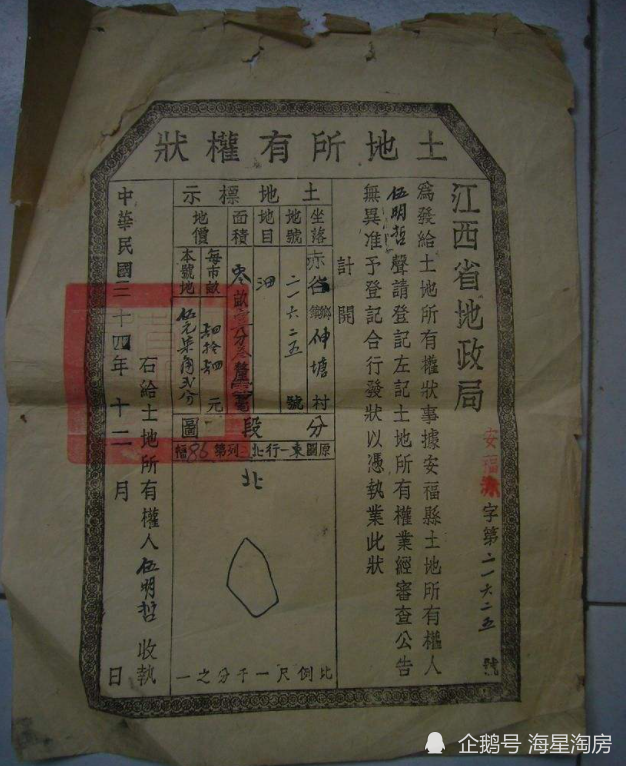 土地所有權狀
江西省地政局
為發給土地所有權狀事據安福縣土地所有權人
伍明哲聲請登記左記土地所有權業經審查公告
無異准予登記合行發狀以憑執業此狀
計開
安福赤字第二一六二五號
土地標示
坐落 赤谷鄉 伸塘村
地號 二一六二五號
地目 田
面積 零畝
地價 每市畝 肆拾肆元
本號地 伍元柒角弍分
分段圖
原圖東一行北二列第86幅
北
比例尺一千分之一
右給土地所有權人伍明哲收執
中華民國三十四年十二月 日
企鹅号 海星淘房